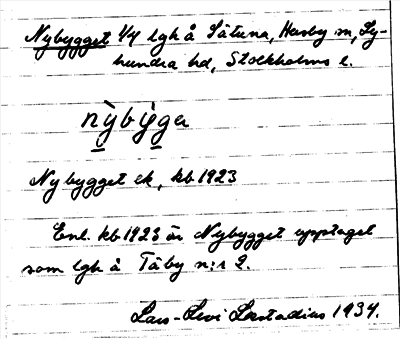 Nybygget 1/4 lgh å Såtuna, Husby sn, Ly-
hundra hd, Stockholms l.
nybyger
Nybygget ek, kb 1923
Enl. kb 1923 är Nybygget upptaget
som lgh å Täby n:r 2.
Lars-Levi Læstadius 1934.